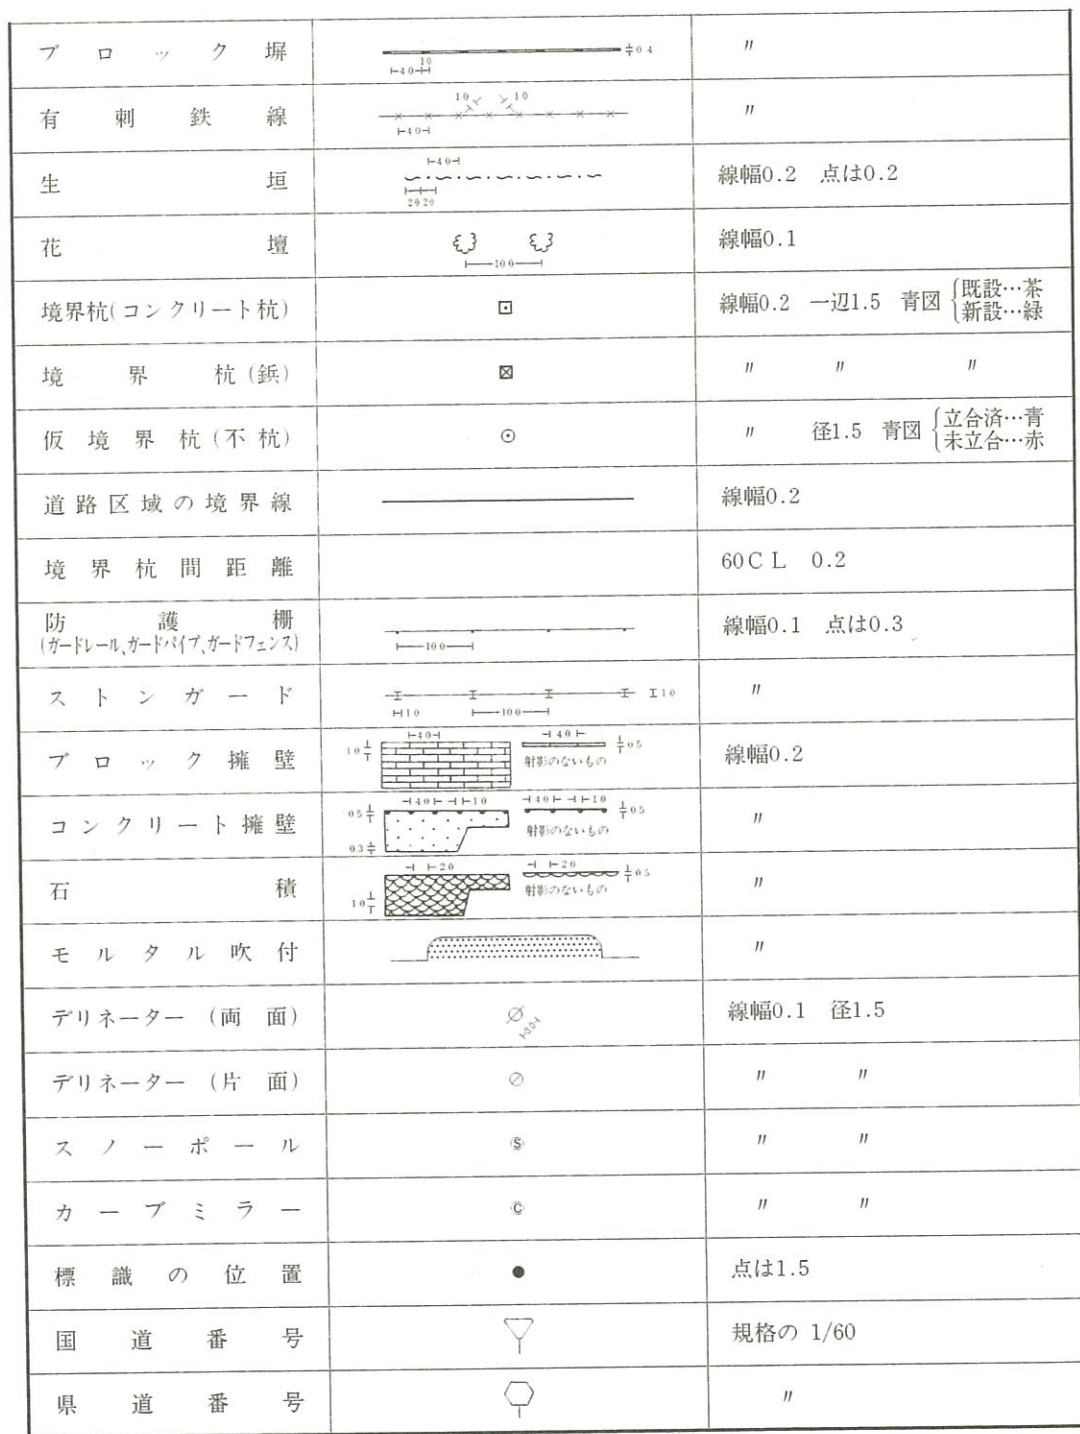 ブロック塀 〃
0.4
1.0
4.0
有刺鉄線 〃
1.0 1.0
4.0
生垣 線幅0.2 点は0.2
4.0
2.0 2.0
花壇 線幅0.1
10.0
境界杭(コンクリート杭) 線幅0.2 一辺1.5 青図 既設…茶
新設…緑
境界杭(鋲) 〃 〃 〃
仮境界杭(不杭) 〃 径1.5 青図 立合済…青
未立合…赤
道路区域の境界線 線幅0.2
境界杭間距離 60CL 0.2
防護柵 線幅0.1 点は0.3
(ガードレール、ガードパイプ、ガードフェンス)
10.0
ストンガード 〃
1.0
1.0 10.0
ブロック擁壁 線幅0.2
4.0 4.0
1.0 0.5
射影のないもの
コンクリート擁壁 〃
4.0 1.0 4.0 1.0
0.5 0.5
射影のないもの
0.3
石積 〃
2.0 2.0
0.5
射影のないもの
1.0
モルタル吹付 〃
デリネーター(両面) 線幅0.1 径1.5
3.0
デリネーター(片面) 〃 〃
スノーポール S 〃 〃
カーブミラー C 〃 〃
標識の位置 点は1.5
国道番号 規格の 1/60
県道番号 〃